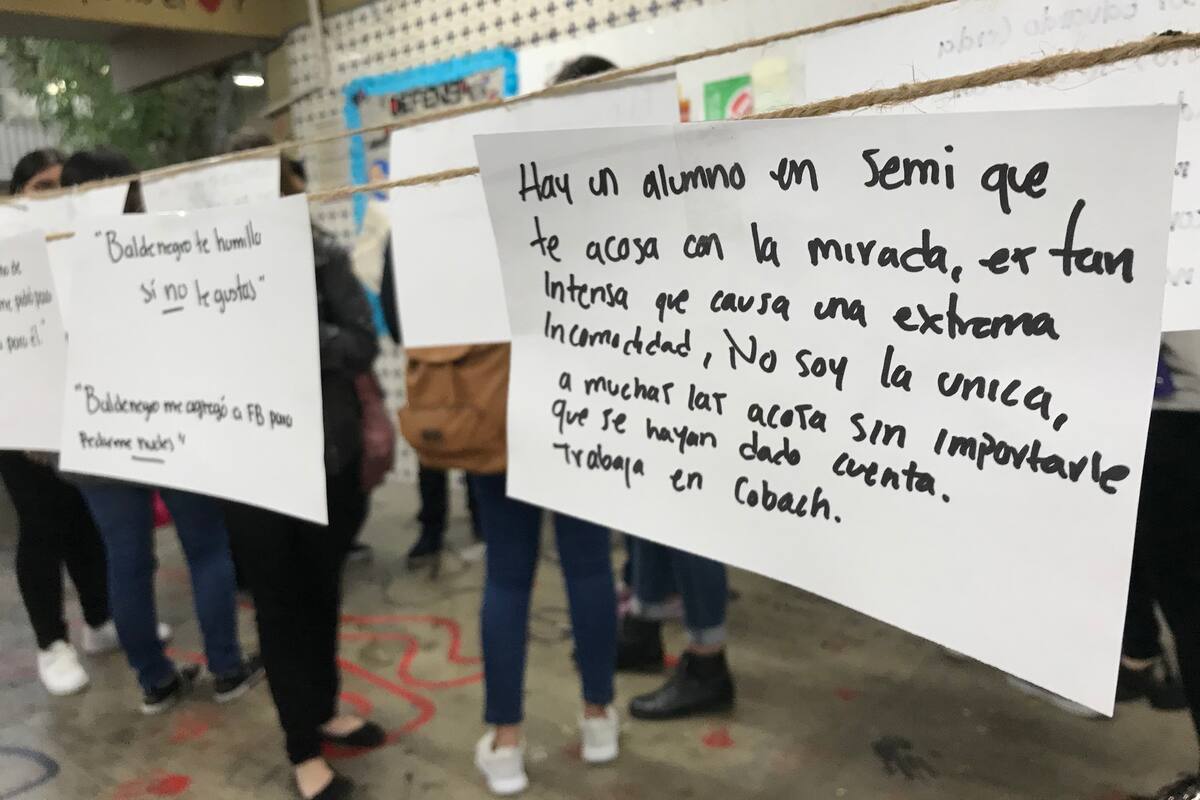 DEFENSA
"Baldenegro te humilla
si no le gustas"
"Baldenegro me agregó a FB para
Pedirme nudes"
Hay un alumno en semi que
te acosa con la mirada, es tan
Intensa que causa una extrema
Incomodidad, No soy la unica,
a muchas las acosa sin importarle
que se hayan dado cuenta.
Trabaja en Cobach.